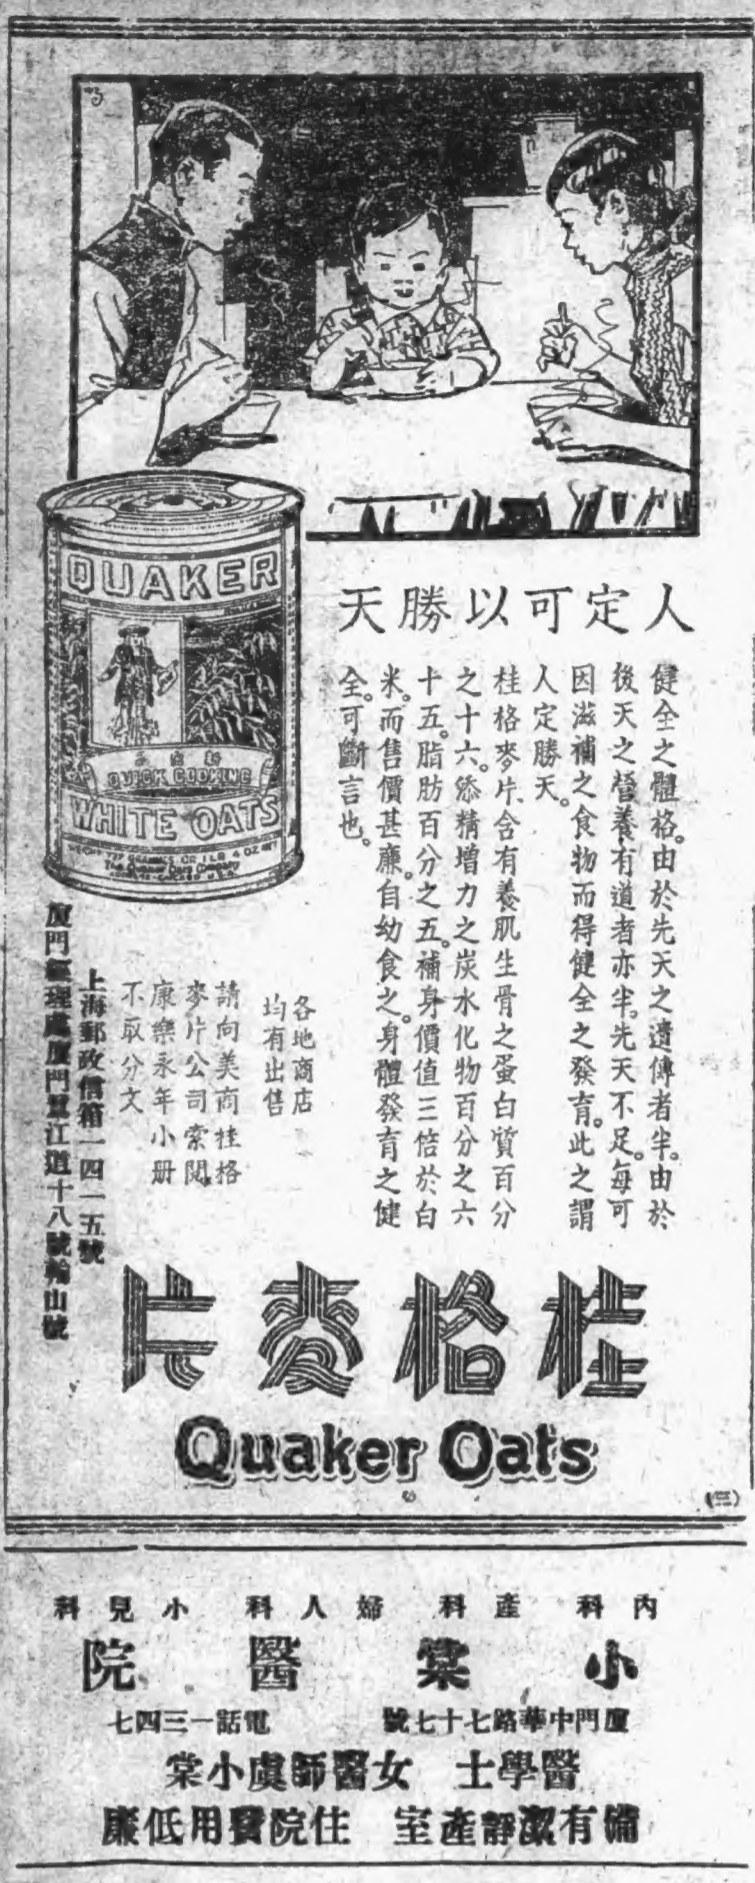 QUAKER
QUICK COOKING
WHITE OATS
The Quaker Oats Company
人定可以勝天
健全之體格。由於先天之遺傳者半。由於
後天之營養有道者亦半。先天不足。每可
因滋補之食物而得健全之發育。此之謂
人定勝天。
桂格麥片含有養肌生骨之蛋白質百分
之十六。添精增力之炭水化物百分之六
十五。脂肪百分之五。補身價值三倍於白
米。而售價甚廉。自幼食之。身體發育之健
全。可斷言也。
各地商店
均有出售
請向美商桂格
麥片公司索閱
康樂永年小册
不取分文
上海郵政信箱一四一五號
廈門經理處廈門鷺江道十八號輪山號
桂格麥片
Quaker Oats
(三)
內科 產科 婦人科 小兒科
小棠醫院
廈門中華路七十七號 電話一三四七
醫學士 女醫師虞小棠
備有潔靜產室 住院費用低廉